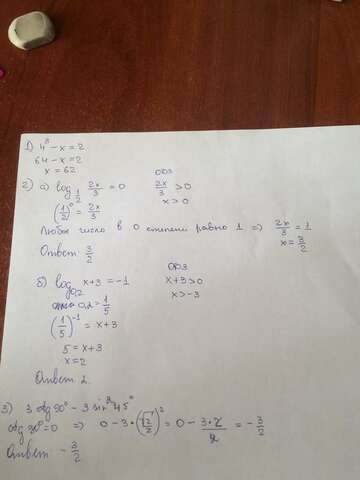 1) 4³ - x = 2
64 - x = 2
x = 62
2) а) log 1/2 2x/3 = 0 ОДЗ 2x/3 > 0
(1/2)⁰ = 2x/3 x > 0
Любое число в 0 степени равно 1 => 2x/3 = 1
Ответ 3/2 x = 3/2
б) log 0,2 x+3 = -1 ОДЗ x+3 > 0
0,2 = 1/5 x > -3
(1/5)⁻¹ = x+3
5 = x+3
x = 2
Ответ 2.
3) 3 ctg 90° - 3 sin² 45°
ctg 90° = 0 => 0 - 3 * (√2/2)² = 0 - 3*2/2 = - 3/2
Ответ: - 3/2